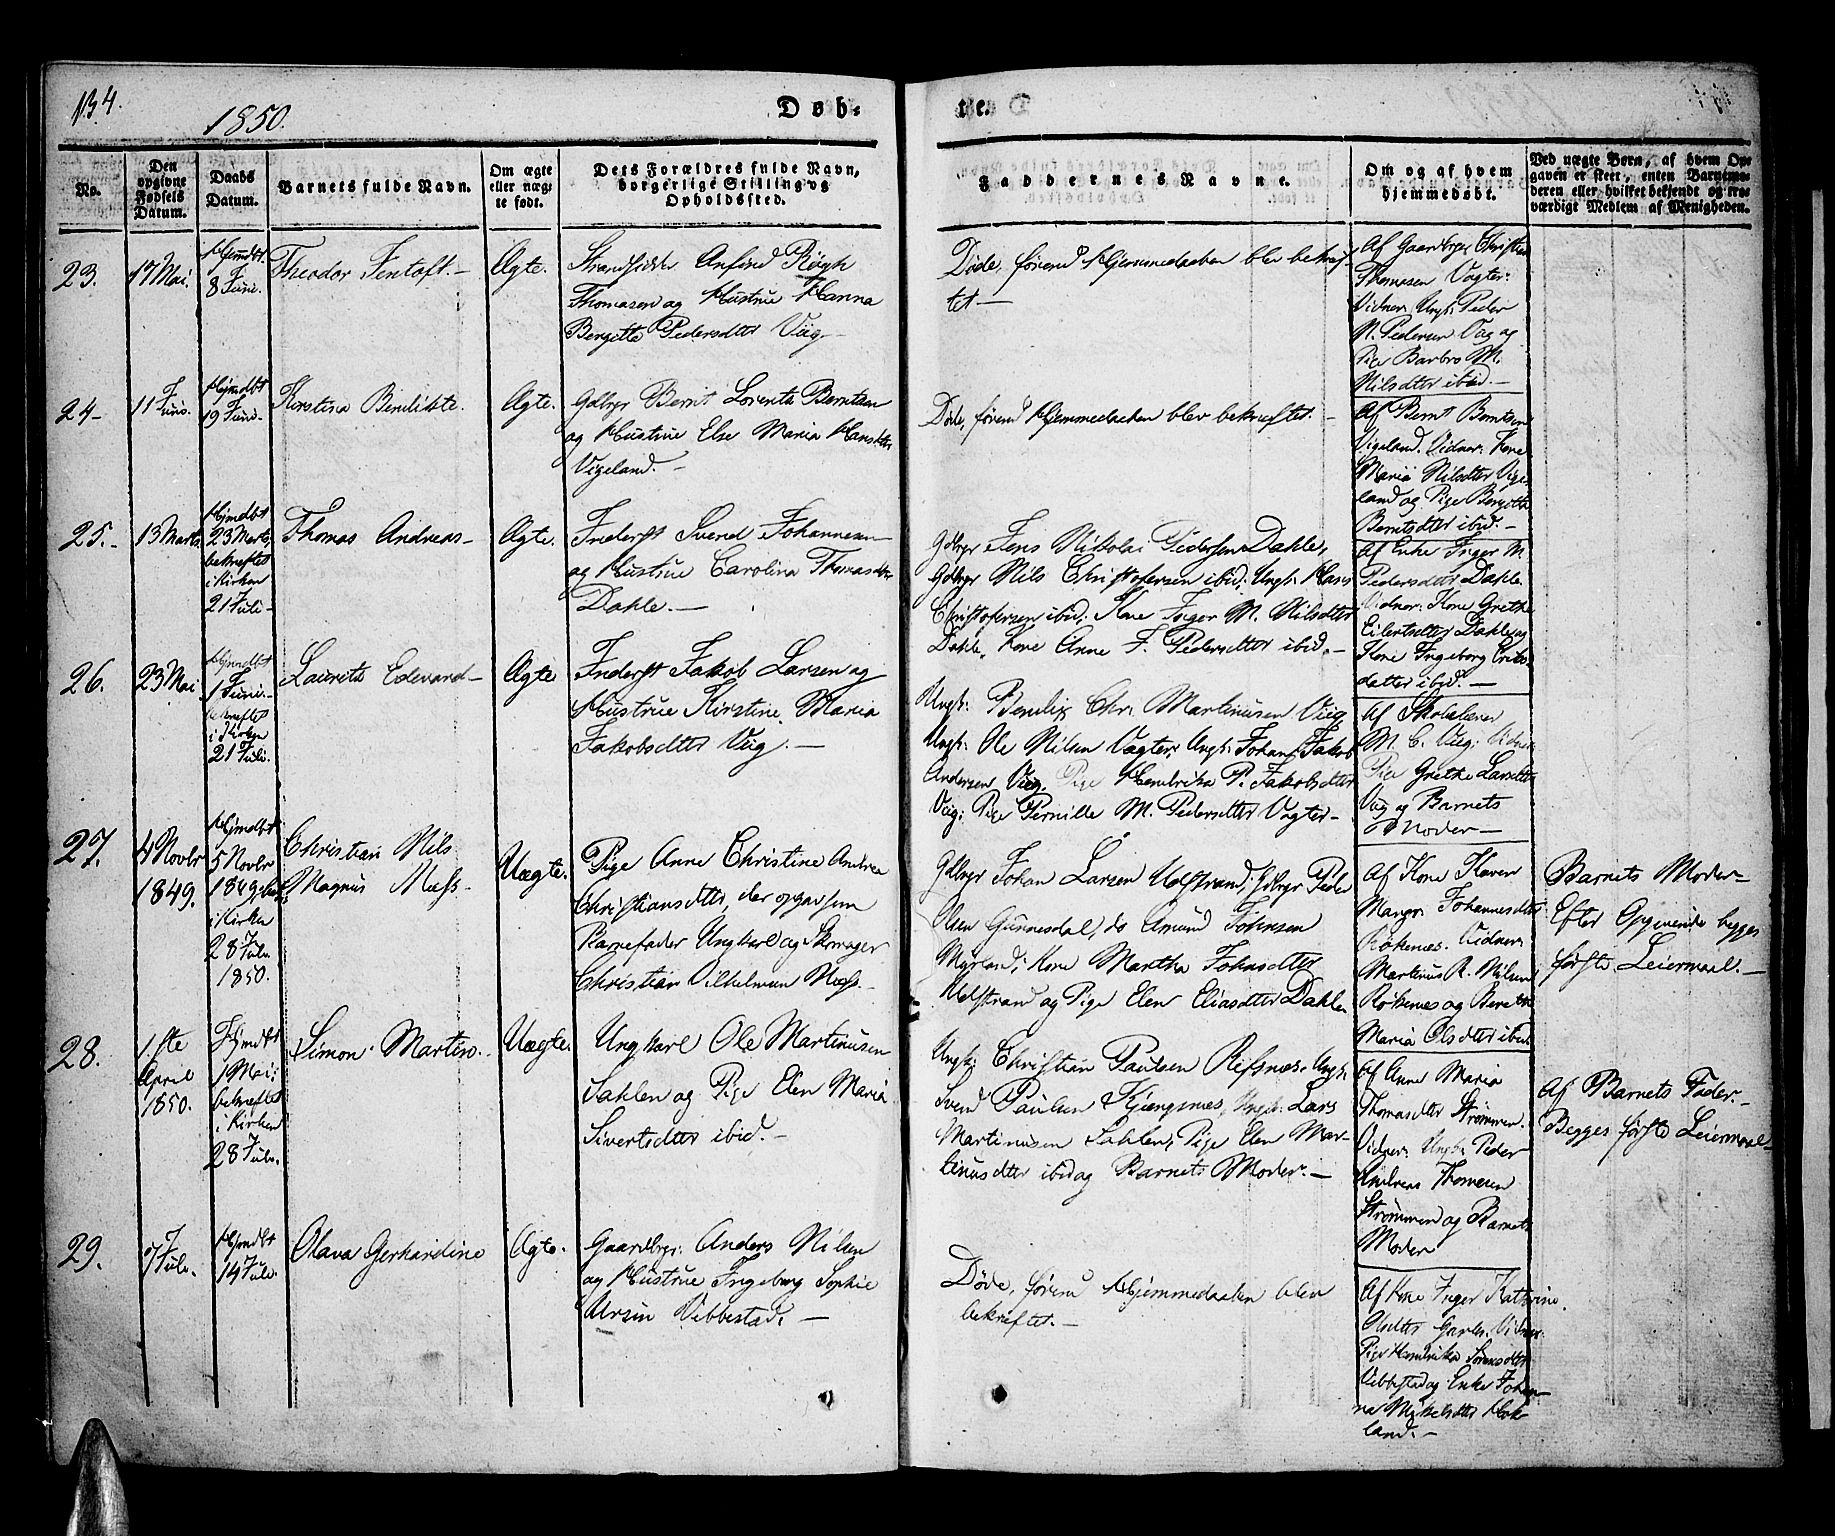 134.
1850.
Døb-
te.
No.
Den opgivne Fødsels Datum.
Daabs Datum.
Barnets fulde Navn.
Om ægte eller uægte født.
Dets Forældres fulde Navn, borgerlige Stilling og Opholdssted.
Faddernes Navne.
Om og af hvem hjemmedøbt.
Ved uægte Børn, af hvem Opgaven er skeet, enten Barnemoderen eller hvilket bekjendt og troværdigt Medlem af Menigheden.
23.
17 Mai.
Hjmdbt
8 Juni.
Theodor Jentoft.-
Ægte.
Strandsidder Anfind Røgh
Thomasen og Hustrue Hanna
Bergitte Pedersdtter Viig.-
Døde, førend Hjemmedaaben blev bekræf-
tet.-
Af Gaardbrger Christen
Thomasen Vogter:
Vidner: Ungk: Peder
N. Pedersen Vog og
Pige Barbro M.
Nilsdtter ibid.-
24-
11 Juni.
Hjmdbt
19 Juni.
Kirstina Bendikte.
Ægte.
Gdbrgr Bernt Lorents Berntsen
og Hustrue Else Maria Hansdtter
Vigeland.-
Døde, førend Hjemmedaaben blev bekræftet.-
Af Bernt Berntsen
Vigeland. Vidner: Kone
Maria Nilsdtter Vige-
land og Pige Bergitte
Berntsdtter ibid.-
25.-
13 Marts.
Hjmdbt
23 Marts,
bekræftet
i Kirken
21 Juli-
Thomas Andreas-
Ægte.
Inderst Svend Johannesen
og Hustrue Carolina Thomasdtter
Dahle.-
Gdbrgr Jens Nikolai Pedersen Dahle,
Gdbrgr Nils Christofersen ibid; Ungk: Hans
Christofersen ibid; Kone Inger M. Nilsdtter
Dahle, Kone Anne J. Pedersdtter ibid.-
Af Enke Inger M.
Pedersdtter Dahle.
Vidner: Kone Grethe
Eilertsdtter Dahle og
Kone Ingeborg Eriks-
datter ibid.-
26.
23 Mai
Hjmdbt
1 Juni-
bekræftet
i Kirken
21 Juli.
Laurits Edevard-
Ægte
Inderst Jakob Larsen og
Hustrue Kirstine Maria
Jakobsdtter Viig.-
Ungk: Bendix Chr. Martinusen Viig
Ungk: Ole Nilsen Vogter; Ungk: Johan Jakob
Andersen Viig. Pige Hendrika P. Jakobsdtter
Viig; Pige Pernille M. Pedersdtter Vogter-
Af Skolelærer
M. C. Viig; Vidner
Pige Grethe Larsdtter
Vog og Barnets
Moder-
27.
4 Novbr
1849.
Hjmdbt
5 Novbr
1849,
i Kirken
28 Juli.
1850.
Christian Nils
Magnus Næss.
Uægte.
Pige Anne Christine Andrea
Christiansdtter, der opgav som
Barnefader Ungkarl og Skomager
Christian Vilhelmsen Næss-
Gdbrgr Johan Larsen Uolstrand, Gdbrgr Peder
Olsen Gunnesdal, do Amund Johnsen
Myrland; Kone Martha Johnsdtter
Uolstrand og Pige Elen Eliasdtter Dahle
Af Kone Karen
Margr. Johannesdtter
Røkenæs. Vidner:
Martinus R. Nilsen
Røkenæs og Berethe
Maria Olsdtter ibid
Barnets Moder-
Efter Opgivende begges
første Leiermaal.-
28.
1.ste
April
1850.
Hjmdbt
1 Mai:
bekræftet
i Kirken
28 Juli.
Simon Martin.
Uægte.
Ungkarl Ole Martinusen
Sahlen og Pige Elen Maria
Sivertsdtter ibid.-
Ungk: Christian Paulsen Refsnæs, Ungk:
Svend Paulsen Kjængsnæs, Ungk: Lars
Martinusen Sahlen, Pige Elen Mar-
tinusdtter ibid og Barnets Moder.-
Af Anne Maria
Thomasdtter Strømmen.
Vidner: Ungk: Peder
Andreas Thomesen
Strømmen og Barnets
Moder
Af Barnets Fader.-
Begges første Leiermaal-
29.
7 Juli.
Hjmdbt
14 Juli.
Olava Gerhardine
Ægte.
Gaardbrgr: Anders Nilsen
og Hustrue Ingeborg Sophie
Ursin Vebbestad.-
Døde, førend Hjemmedaaben blev
bekræftet.-
Af Kone Inger Kathrine
Vidner:
Pige Hendrikka Sørensdtter
Vebbestad og Enke Johan-
na Mikkelsdtter Hok-
land.-